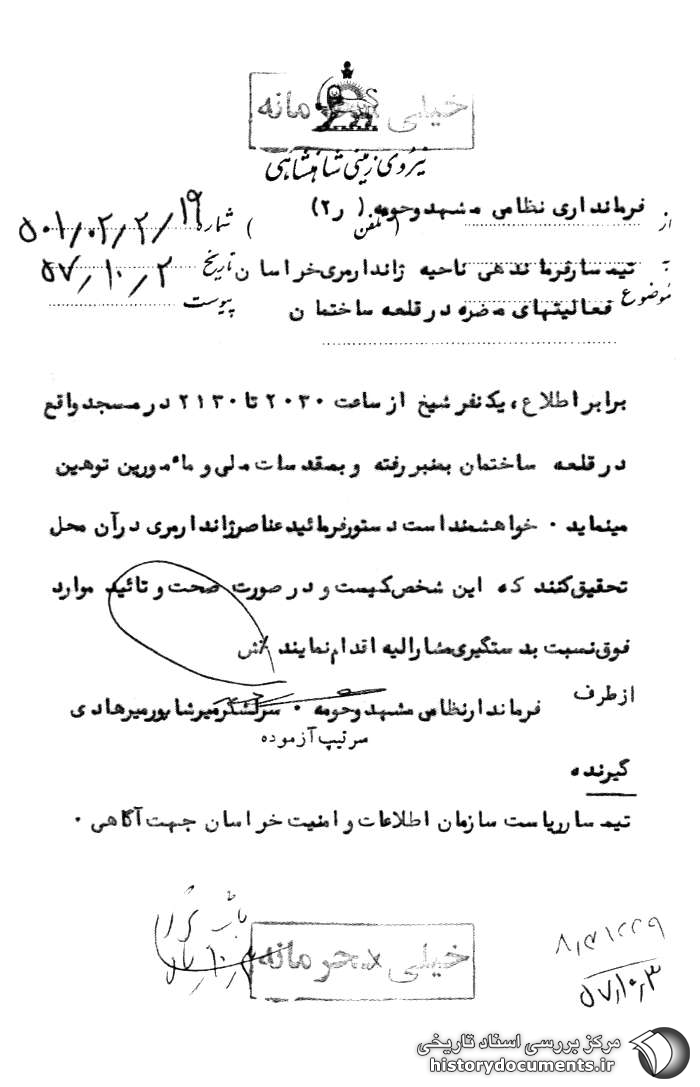 خیلی محرمانه
نیروی زمینی شاهنشاهی
از فرمانداری نظامی مشهد و حومه ( ر۲ ) ( تلفن ) شماره ۵۰۱/۰۲/۲/۱۹
به تیمسار فرماندهی ناحیه ژاندارمری خراسان تاریخ ۵۷/۱۰/۲
موضوع فعالیتهای مضره در قلعه ساختمان پیوست
برابر اطلاع ، یکنفر شیخ از ساعت ۲۰۳۰ تا ۲۱۳۰ در مسجد واقع
در قلعه ساختمان بمنبر رفته و بمقدسات ملی و مأمورین توهین
مینماید ۰ خواهشمند است دستور فرمائید عناصر ژاندارمری در آن محل
تحقیق کنند که این شخص کیست و در صورت صحت و تائید موارد
فوق نسبت بدستگیری مشارالیه اقدام نمایند /ش
از طرف فرماندار نظامی مشهد و حومه ۰ سرلشگر میرشاپور میرهادی
سرتیپ آزموده
گیرنده
تیمسار ریاست سازمان اطلاعات و امنیت خراسان جهت آگاهی ۰
خیلی محرمانه
۵۷/۱۰/۳
مرکز بررسی اسناد تاریخی
historydocuments.ir